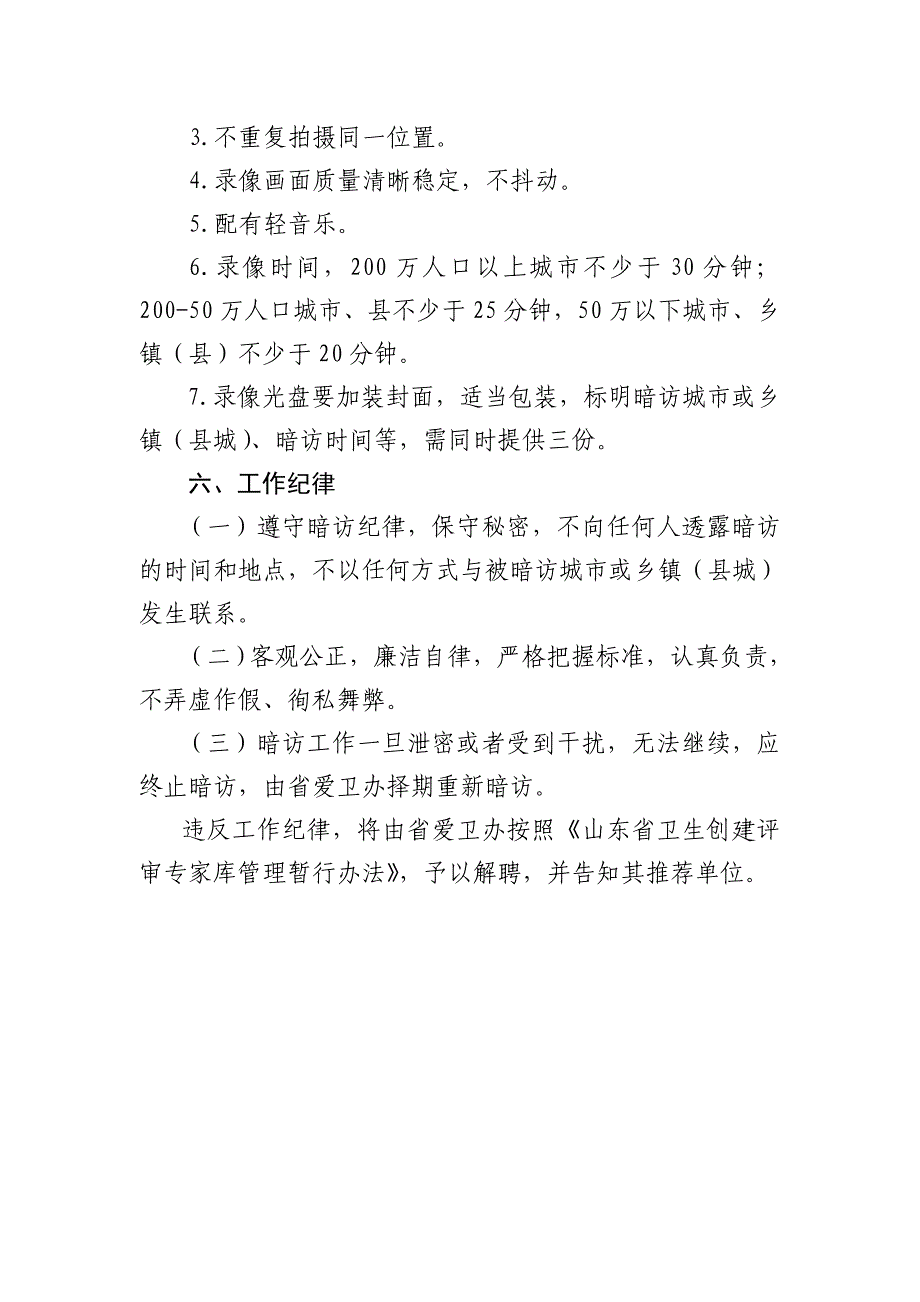 3.不重复拍摄同一位置。
4.录像画面质量清晰稳定，不抖动。
5.配有轻音乐。
6.录像时间，200万人口以上城市不少于30分钟；
200-50万人口城市、县不少于25分钟，50万以下城市、乡
镇（县）不少于20分钟。
7.录像光盘要加装封面，适当包装，标明暗访城市或乡
镇（县城）、暗访时间等，需同时提供三份。
六、工作纪律
（一）遵守暗访纪律，保守秘密，不向任何人透露暗访
的时间和地点，不以任何方式与被暗访城市或乡镇（县城）
发生联系。
（二）客观公正，廉洁自律，严格把握标准，认真负责，
不弄虚作假、徇私舞弊。
（三）暗访工作一旦泄密或者受到干扰，无法继续，应
终止暗访，由省爱卫办择期重新暗访。
违反工作纪律，将由省爱卫办按照《山东省卫生创建评
审专家库管理暂行办法》，予以解聘，并告知其推荐单位。